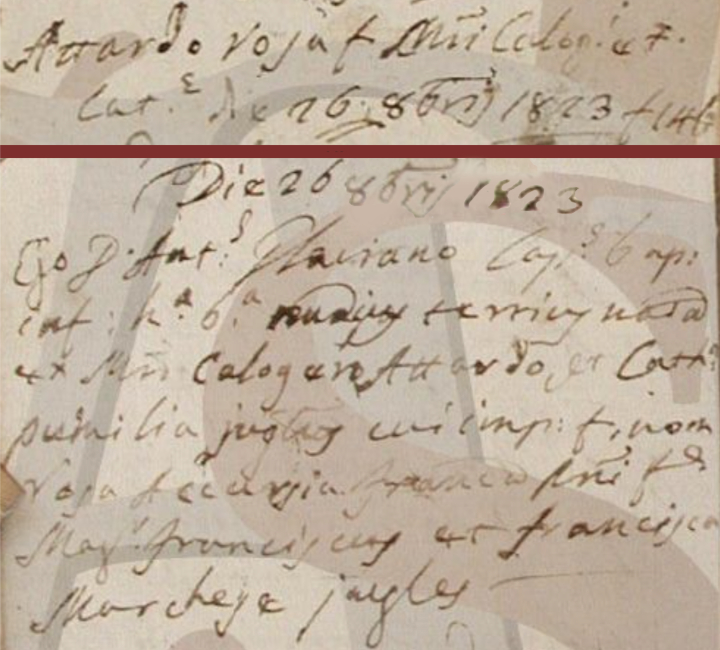 Attardo rosa f. Mri Calog: et
Cat.ᵉ die 26 8bris 1823 f 146
Die 26 8bris 1823
Ego D. Ant: Graviano Cap.ˢ bap:
inf: h.ᵃ 6.ᵃ nudius tertius nata
ex Mro Calogero Attardo, et Catt:
pumilia jugles cui imp: f. nom
rosa
Mag: franciscus et francisca
Marchese jugles